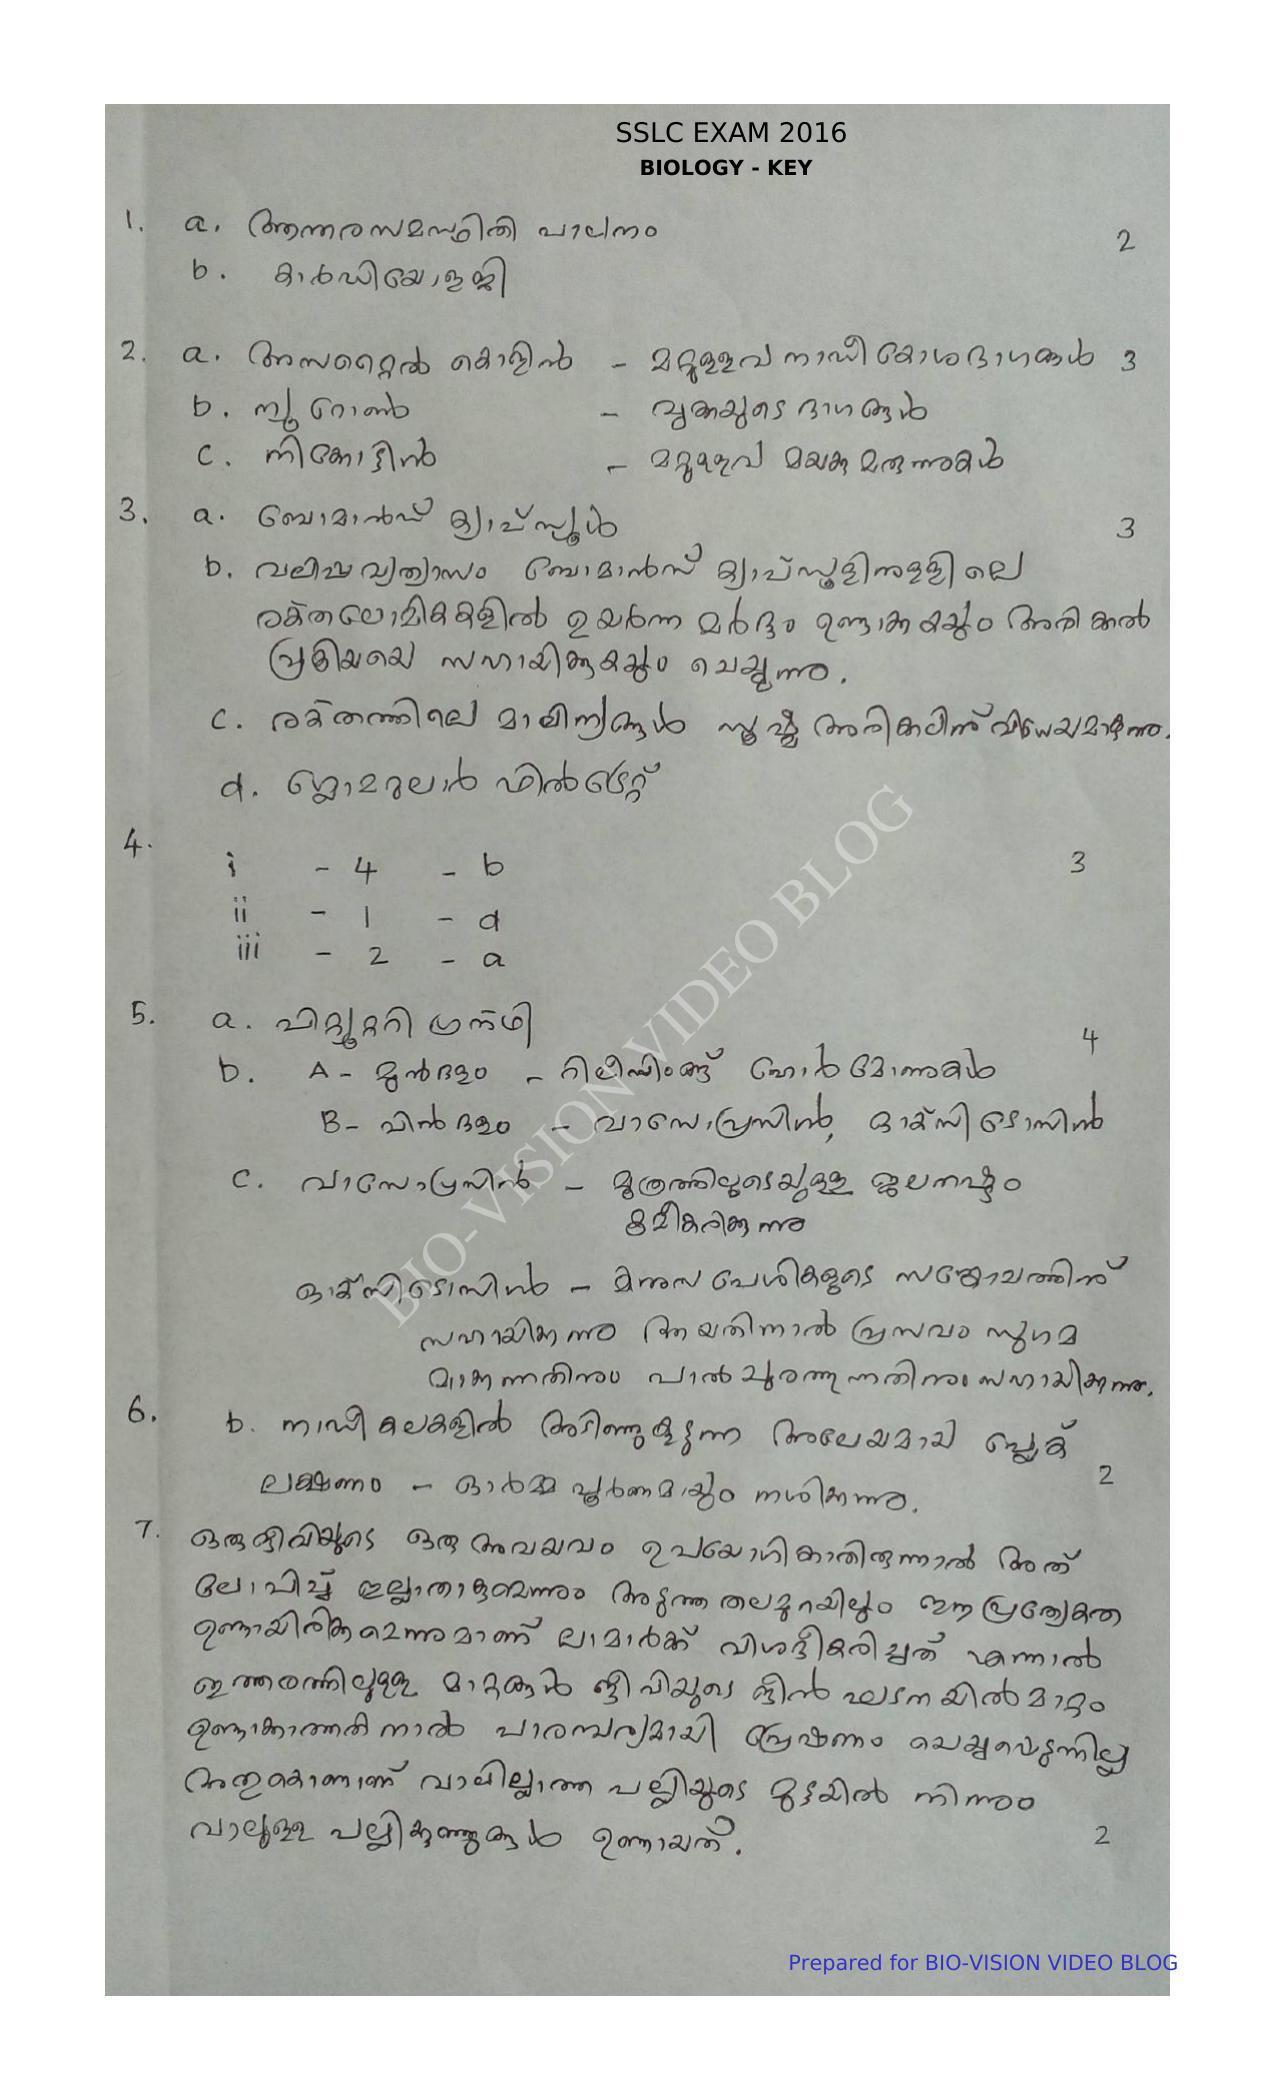 SSLC EXAM 2016
BIOLOGY - KEY
1. a. ആന്തരസമസ്ഥിതി പാലനം 2
b. കാർഡിയോളജി
2. a. അസറ്റൈൽ കൊളിൻ - മറ്റുള്ളവ നാഡീകോശഭാഗങ്ങൾ 3
b. ന്യൂറോൺ - വൃക്കയുടെ ഭാഗങ്ങൾ
c. നിക്കോട്ടിൻ - മറ്റുള്ളവ മയക്കുമരുന്നുകൾ
3. a. ബോമാൻസ് ക്യാപ്സ്യൂൾ 3
b. വലിപ്പവ്യത്യാസം ബോമാൻസ് ക്യാപ്സ്യൂളിനുള്ളിലെ
രക്തലോമികകളിൽ ഉയർന്ന മർദ്ദം ഉണ്ടാക്കുകയും അരിക്കൽ
പ്രക്രിയയെ സഹായിക്കുകയും ചെയ്യുന്നു.
c. രക്തത്തിലെ മാലിന്യങ്ങൾ സൂക്ഷ്മ അരിക്കലിന് വിധേയമാകുന്നു.
d. ഗ്ലോമറുലാർ ഫിൽട്രേറ്റ്
4.
i - 4 - b 3
ii - 1 - d
iii - 2 - a
5. a. പിറ്റ്യൂറ്ററി ഗ്രന്ഥി 4
b. A - മുൻദളം - റിലീസിംങ്ങ് ഹോർമോണുകൾ
B - പിൻദളം - വാസോപ്രസിൻ, ഓക്സിടോസിൻ
c. വാസോപ്രസിൻ - മൂത്രത്തിലൂടെയുള്ള ജലനഷ്ടം
ക്രമീകരിക്കുന്നു
ഓക്സിടോസിൻ - മിനുസപേശികളുടെ സങ്കോചത്തിന്
സഹായിക്കുന്നു ആയതിനാൽ പ്രസവം സുഗമ
മാക്കുന്നതിനും പാൽ ചുരത്തുന്നതിനും സഹായിക്കുന്നു.
6. b. നാഡീകലകളിൽ അടിഞ്ഞുകൂടുന്ന അലേയമായ പ്ലേക്
ലക്ഷണം - ഓർമ്മ പൂർണമായും നശിക്കുന്നു. 2
7. ഒരു ജീവിയുടെ ഒരു അവയവം ഉപയോഗിക്കാതിരുന്നാൽ അത്
ലോപിച്ച് ഇല്ലാതാകുമെന്നും അടുത്ത തലമുറയിലും ഈ പ്രത്യേകത
ഉണ്ടായിരിക്കുമെന്നുമാണ് ലാമാർക്ക് വിശദീകരിച്ചത് എന്നാൽ
ഇത്തരത്തിലുള്ള മാറ്റങ്ങൾ ജീവിയുടെ ജീൻ ഘടനയിൽ മാറ്റം
ഉണ്ടാക്കാത്തതിനാൽ പാരമ്പര്യമായി പ്രേഷണം ചെയ്യപ്പെടുന്നില്ല
അതുകൊണ്ടാണ് വാലില്ലാത്ത പല്ലിയുടെ മുട്ടയിൽ നിന്നും
വാലുള്ള പല്ലിക്കുഞ്ഞുങ്ങൾ ഉണ്ടായത്. 2
BIO-VISION VIDEO BLOG
Prepared for BIO-VISION VIDEO BLOG